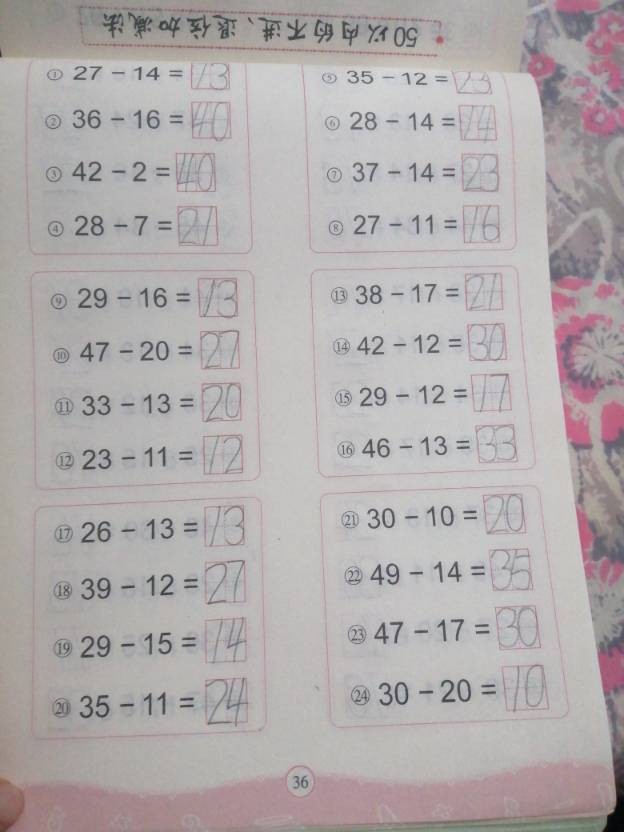 50以内的不进、退位加减法
① 27 − 14 = 13
② 36 − 16 = 40
③ 42 − 2 = 40
④ 28 − 7 = 21
⑤ 35 − 12 = 23
⑥ 28 − 14 = 14
⑦ 37 − 14 = 23
⑧ 27 − 11 = 16
⑨ 29 − 16 = 13
⑩ 47 − 20 = 27
⑪ 33 − 13 = 20
⑫ 23 − 11 = 12
⑬ 38 − 17 = 21
⑭ 42 − 12 = 30
⑮ 29 − 12 = 17
⑯ 46 − 13 = 33
⑰ 26 − 13 = 13
⑱ 39 − 12 = 27
⑲ 29 − 15 = 14
⑳ 35 − 11 = 24
㉑ 30 − 10 = 20
㉒ 49 − 14 = 35
㉓ 47 − 17 = 30
㉔ 30 − 20 = 10
36